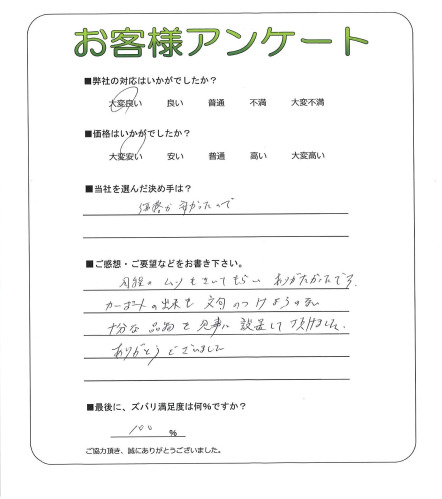 お客様アンケート
■弊社の対応はいかがでしたか?
大変良い 良い 普通 不満 大変不満
■価格はいかがでしたか?
大変安い 安い 普通 高い 大変高い
■当社を選んだ決め手は?
価格が安かったので
■ご感想・ご要望などをお書き下さい。
日程のムリもきいてもらい ありがたかったです。
カーポートの出来も文句のつけようのない
十分な品物を見事に設置して頂けました。
ありがとうございました
■最後に、ズバリ満足度は何%ですか?
100 %
ご協力頂き、誠にありがとうございました。